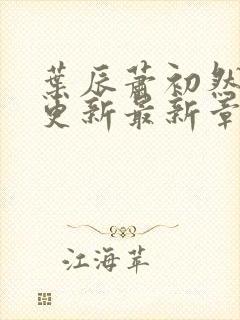 葉辰蕭初然
更新最新章
江海苹